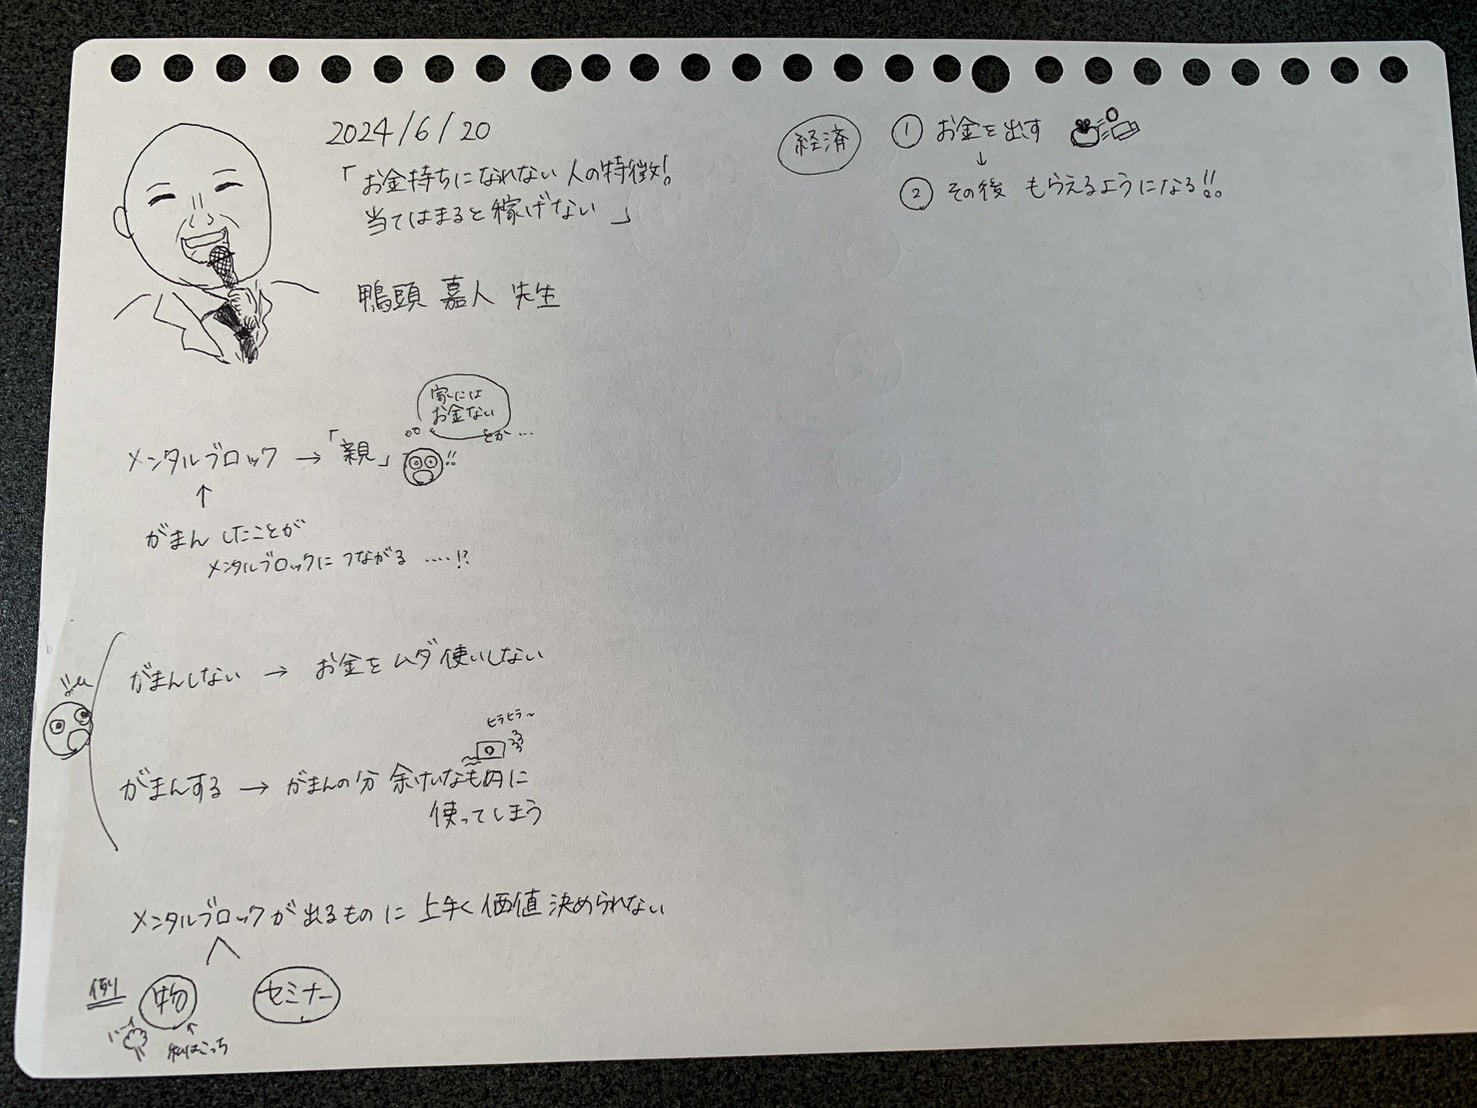 2024/6/20
「お金持ちになれない人の特徴!
当てはまると稼げない」
鴨頭 嘉人 先生
家には
お金ない
とか…
メンタルブロック → 「親」 !!
↑
がまんしたことが
メンタルブロックにつながる ‥‥!?
がまんしない → お金をムダ使いしない
ヒラヒラ〜
がまんする → がまんの分 余けいなものに
使ってしまう
メンタルブロックが出るものに 上手く価値決められない
例 物 セミナー
↑
私はこっち
経済 ① お金を出す
↓
② その後 もらえるようになる!!